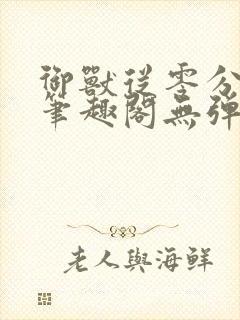 御獸從零分
筆趣閣無彈
老人與海鮮